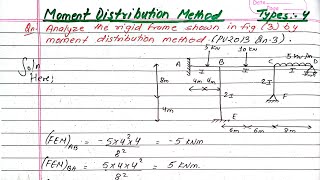 Moment Distribution Method Types:- 4
Qn: Analyze the rigid frame shown in fig (3) by
moment distribution method. (PU2013 Qn.3).
Soln
Here;
5 KN 10 KN 5 KN/m
A B C D
I I I
8m 2I 2I
4m F
E
6m 6m 4m
(FEM)AB = - 5x4²x4 / 8² = -5 KNm
(FEM)BA = 5x4x4² / 8² = 5 KNm.